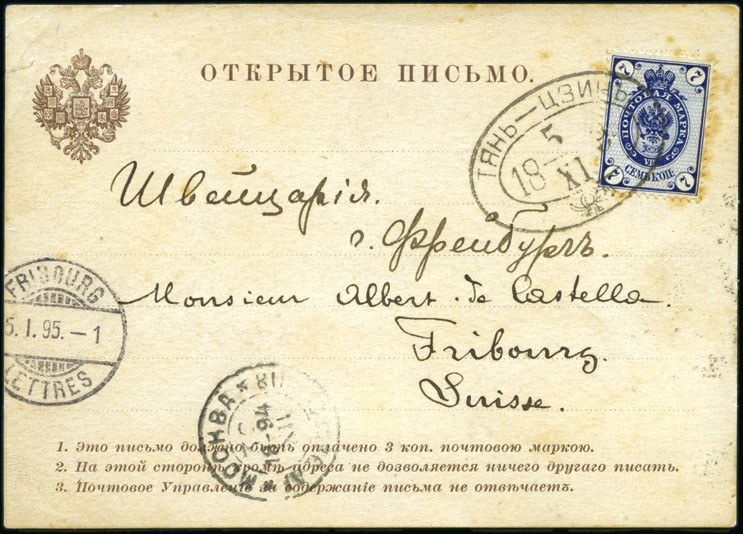 ОТКРЫТОЕ ПИСЬМО.
ТЯНЬ—ЦЗИНЬ
5
18 XI
7 7
ПОЧТОВАЯ МАРКА
СЕМЬ КОП.
7 7
Швейцарія.
г. Фрейбургъ.
Monsieur Albert de Castella.
Fribourg.
Suisse.
FRIBOURG
5. I. 95. — 1
LETTRES
МОСКВА
94
1. Это письмо должно быть оплачено 3 коп. почтовою маркою.
2. На этой сторонѣ кромѣ адреса не дозволяется ничего другаго писать.
3. Почтовое Управленіе за содержаніе письма не отвѣчаетъ.